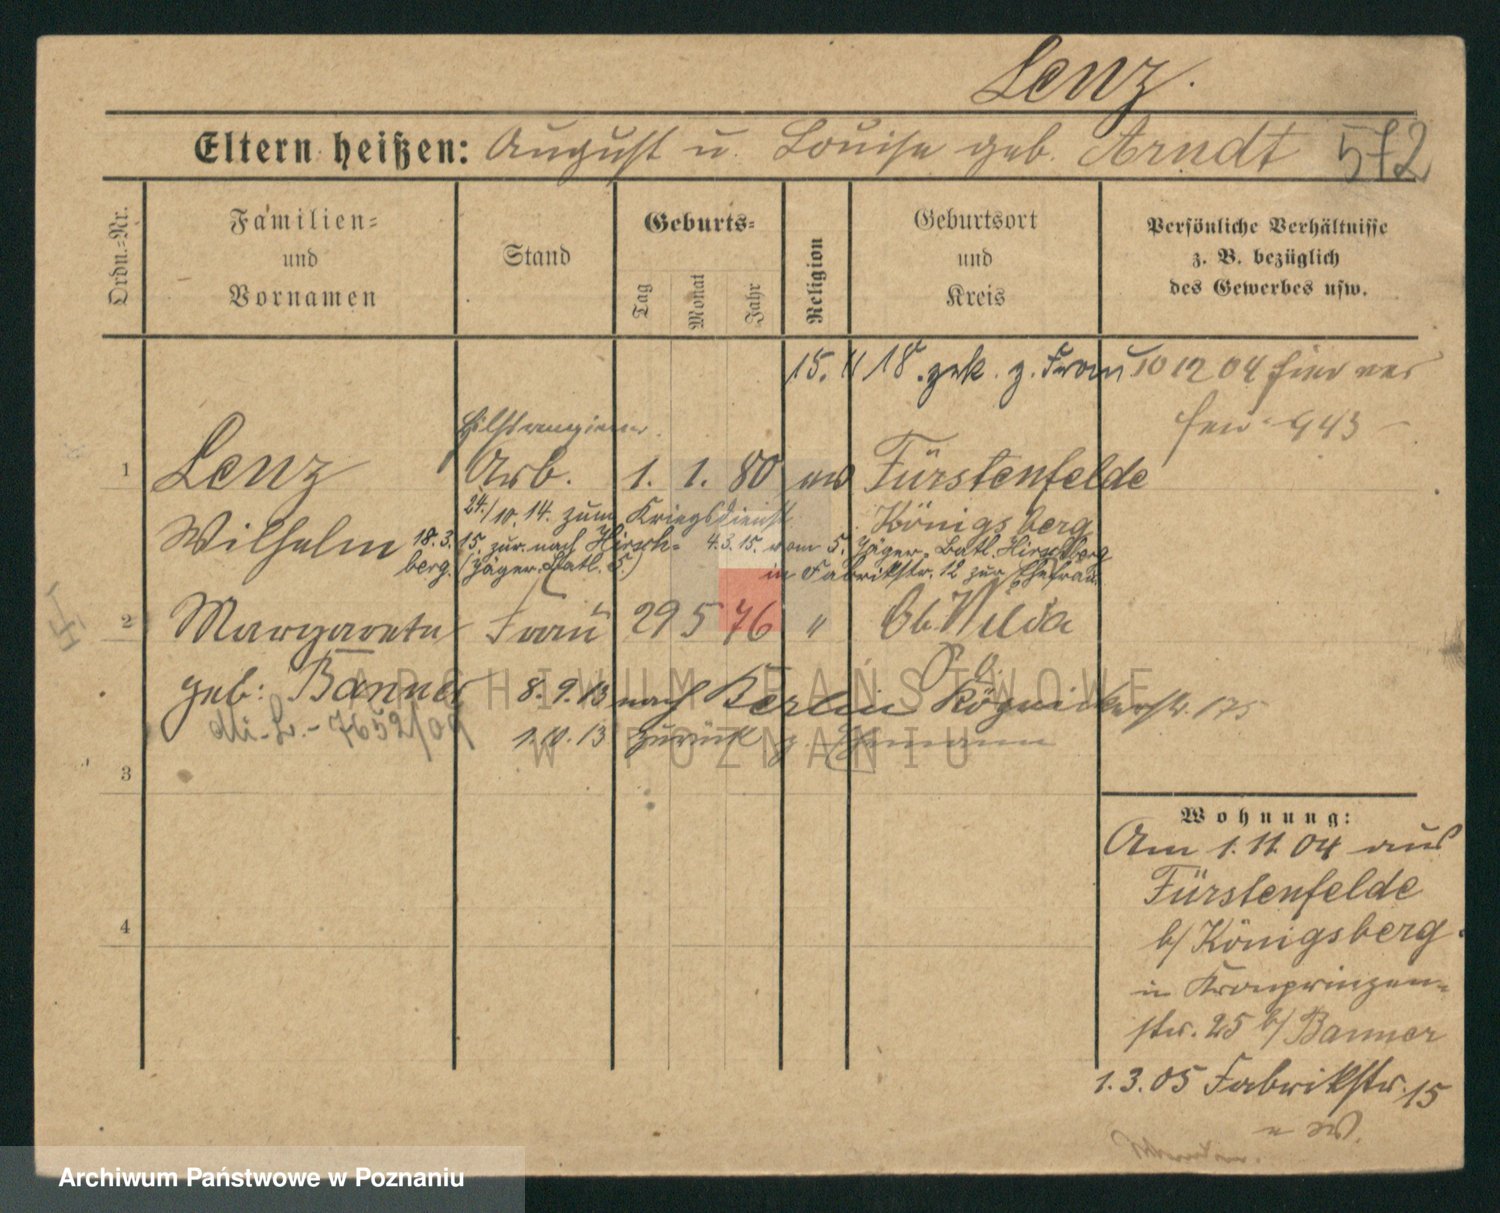 Lenz.
Eltern heißen: August u. Louise geb. Arndt 572
Ordn.=Nr.
Familien=
und
Vornamen
Stand
Geburts=
Tag
Monat
Jahr
Religion
Geburtsort
und
Kreis
Persönliche Verhältnisse
z. B. bezüglich
des Gewerbes usw.
15. 11 18. z. Frau
10 12 04 hier
943
Hilfsrangierer
1 Lenz Arb. 1. 1. 80 Fürstenfelde
24./10. 14. zum Kriegsdienst Königsberg
Wilhelm 18.3.15. zur. nach Hirsch= 4.3.15. vom 5. Jäger. Batl. Hirschberg
berg. (Jäger. Batl. 5.) in Fabrikstr. 12 zur Ehefrau
2 Margarete Frau 29 5 76 " Ob. Wilda
geb: Banner 8.9.13 nach Berlin Köpnickerstr. 175
1.10.13 zurück z. Ehemann
3
4
Wohnung:
Am 1.11.04 aus
Fürstenfelde
b/ Königsberg.
in Kronprinzen=
str. 25 b/ Banner
1.3.05 Fabrikstr. 15
ARCHIWUM PAŃSTWOWE
W POZNANIU
Archiwum Państwowe w Poznaniu